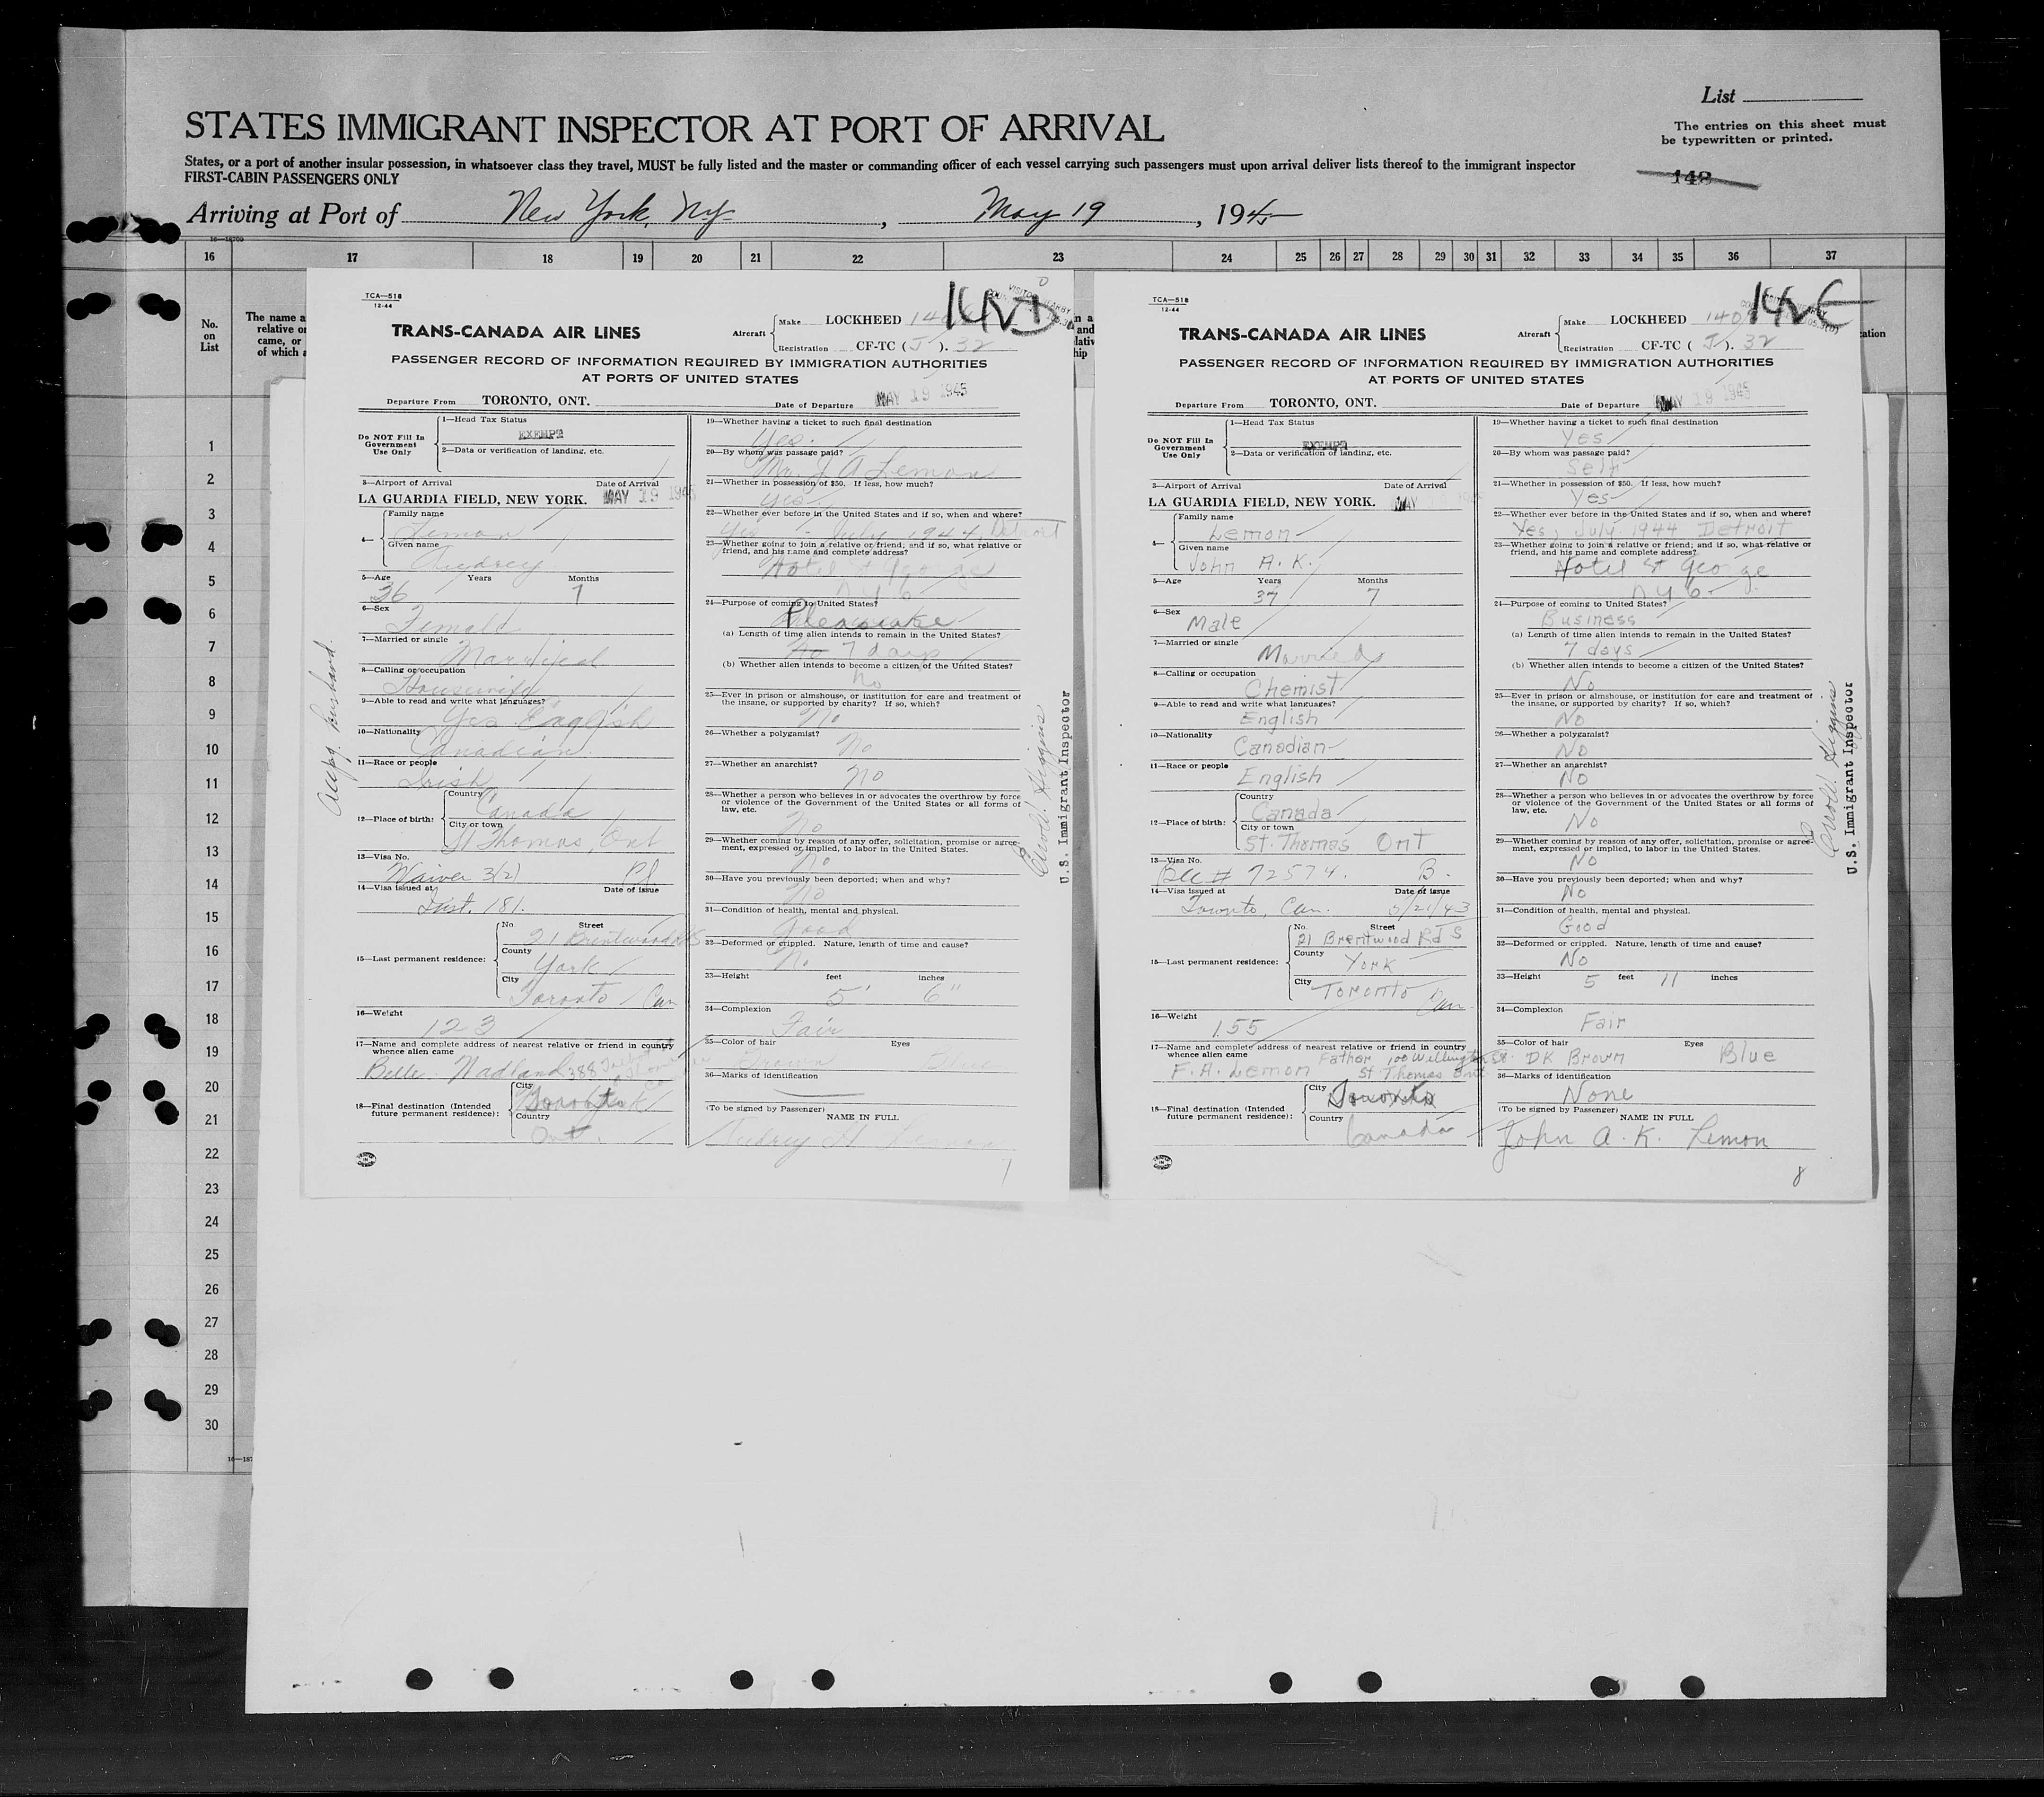 List
STATES IMMIGRANT INSPECTOR AT PORT OF ARRIVAL
The entries on this sheet must
be typewritten or printed.
States, or a port of another insular possession, in whatsoever class they travel, MUST be fully listed and the master or commanding officer of each vessel carrying such passengers must upon arrival deliver lists thereof to the immigrant inspector
FIRST-CABIN PASSENGERS ONLY
148
Arriving at Port of New York, NY , May 19 , 1945
16 17 18 19 20 21 22 23 24 25 26 27 28 29 30 31 32 33 34 35 36 37
No.
on
List
The name a
relative or
came, or
of which a
1
2
3
4
5
6
7
8
9
10
11
12
13
14
15
16
17
18
19
20
21
22
23
24
25
26
27
28
29
30
TCA—518
12-44
TRANS-CANADA AIR LINES
Aircraft Make LOCKHEED
Registration CF-TC (J). 32
PASSENGER RECORD OF INFORMATION REQUIRED BY IMMIGRATION AUTHORITIES
AT PORTS OF UNITED STATES
Departure From TORONTO, ONT. Date of Departure MAY 19 1945
Do NOT Fill In
Government
Use Only
1—Head Tax Status
EXEMPT
2—Data or verification of landing, etc.
3—Airport of Arrival Date of Arrival
LA GUARDIA FIELD, NEW YORK. MAY 19 1945
4— Family name
Lemon
Given name
Audrey
5—Age Years Months
36 7
6—Sex
Female
7—Married or single
Married
8—Calling or occupation
Housewife
9—Able to read and write what languages?
Yes English
10—Nationality
Canadian
11—Race or people
Irish
12—Place of birth: Country
Canada
City or town
St Thomas, Ont
13—Visa No.
Waiver 3(2)
14—Visa issued at Date of issue
Inst. 181.
15—Last permanent residence: No. Street
21 Brentwood Rd S
County
York
City
Toronto Can
16—Weight
123
17—Name and complete address of nearest relative or friend in country
whence alien came
Belle 388
18—Final destination (Intended
future permanent residence): City
Country
Ont.
19—Whether having a ticket to such final destination
Yes.
20—By whom was passage paid?
Mr. J. A Lemon
21—Whether in possession of $50. If less, how much?
Yes
22—Whether ever before in the United States and if so, when and where?
Yes - July 1944, Detroit
23—Whether going to join a relative or friend; and if so, what relative or
friend, and his name and complete address?
Hotel St George
N Y C
24—Purpose of coming to United States?
Pleasure
(a) Length of time alien intends to remain in the United States?
7 days
(b) Whether alien intends to become a citizen of the United States?
No
25—Ever in prison or almshouse, or institution for care and treatment of
the insane, or supported by charity? If so, which?
No
26—Whether a polygamist?
No
27—Whether an anarchist?
No
28—Whether a person who believes in or advocates the overthrow by force
or violence of the Government of the United States or all forms of
law, etc.
No
29—Whether coming by reason of any offer, solicitation, promise or agree-
ment, expressed or implied, to labor in the United States.
No
30—Have you previously been deported; when and why?
No
31—Condition of health, mental and physical.
Good
32—Deformed or crippled. Nature, length of time and cause?
No
33—Height feet inches
5' 6"
34—Complexion
Fair
35—Color of hair Eyes
Brown Blue
36—Marks of identification
(To be signed by Passenger) NAME IN FULL
Audrey H Lemon
7
accpg. husband.
U.S. Immigrant Inspector
TCA—518
12-44
TRANS-CANADA AIR LINES
Aircraft Make LOCKHEED
Registration CF-TC (J). 32
PASSENGER RECORD OF INFORMATION REQUIRED BY IMMIGRATION AUTHORITIES
AT PORTS OF UNITED STATES
Departure From TORONTO, ONT. Date of Departure MAY 19 1945
Do NOT Fill In
Government
Use Only
1—Head Tax Status
EXEMPT
2—Data or verification of landing, etc.
3—Airport of Arrival Date of Arrival
LA GUARDIA FIELD, NEW YORK. MAY
4— Family name
Lemon
Given name
John A. K.
5—Age Years Months
37 7
6—Sex
Male
7—Married or single
Married
8—Calling or occupation
Chemist
9—Able to read and write what languages?
English
10—Nationality
Canadian
11—Race or people
English
12—Place of birth: Country
Canada
City or town
St. Thomas Ont
13—Visa No.
BCC # 72574. B.
14—Visa issued at Date of issue
Toronto, Can. 5/21/43
15—Last permanent residence: No. Street
21 Brentwood Rd S
County
York
City
Toronto Can.
16—Weight
155
17—Name and complete address of nearest relative or friend in country
whence alien came
Father 100 Wellington St.
F. A. Lemon St Thomas Ont
18—Final destination (Intended
future permanent residence): City
Toronto
Country
Canada
19—Whether having a ticket to such final destination
Yes
20—By whom was passage paid?
Self
21—Whether in possession of $50. If less, how much?
Yes
22—Whether ever before in the United States and if so, when and where?
Yes, July 1944 Detroit
23—Whether going to join a relative or friend; and if so, what relative or
friend, and his name and complete address?
Hotel St George
N Y C
24—Purpose of coming to United States?
Business
(a) Length of time alien intends to remain in the United States?
7 days
(b) Whether alien intends to become a citizen of the United States?
No
25—Ever in prison or almshouse, or institution for care and treatment of
the insane, or supported by charity? If so, which?
No
26—Whether a polygamist?
No
27—Whether an anarchist?
No
28—Whether a person who believes in or advocates the overthrow by force
or violence of the Government of the United States or all forms of
law, etc.
No
29—Whether coming by reason of any offer, solicitation, promise or agree-
ment, expressed or implied, to labor in the United States.
No
30—Have you previously been deported; when and why?
No
31—Condition of health, mental and physical.
Good
32—Deformed or crippled. Nature, length of time and cause?
No
33—Height feet inches
5 11
34—Complexion
Fair
35—Color of hair Eyes
DK Brown Blue
36—Marks of identification
None
(To be signed by Passenger) NAME IN FULL
John A. K. Lemon
8
U.S. Immigrant Inspector